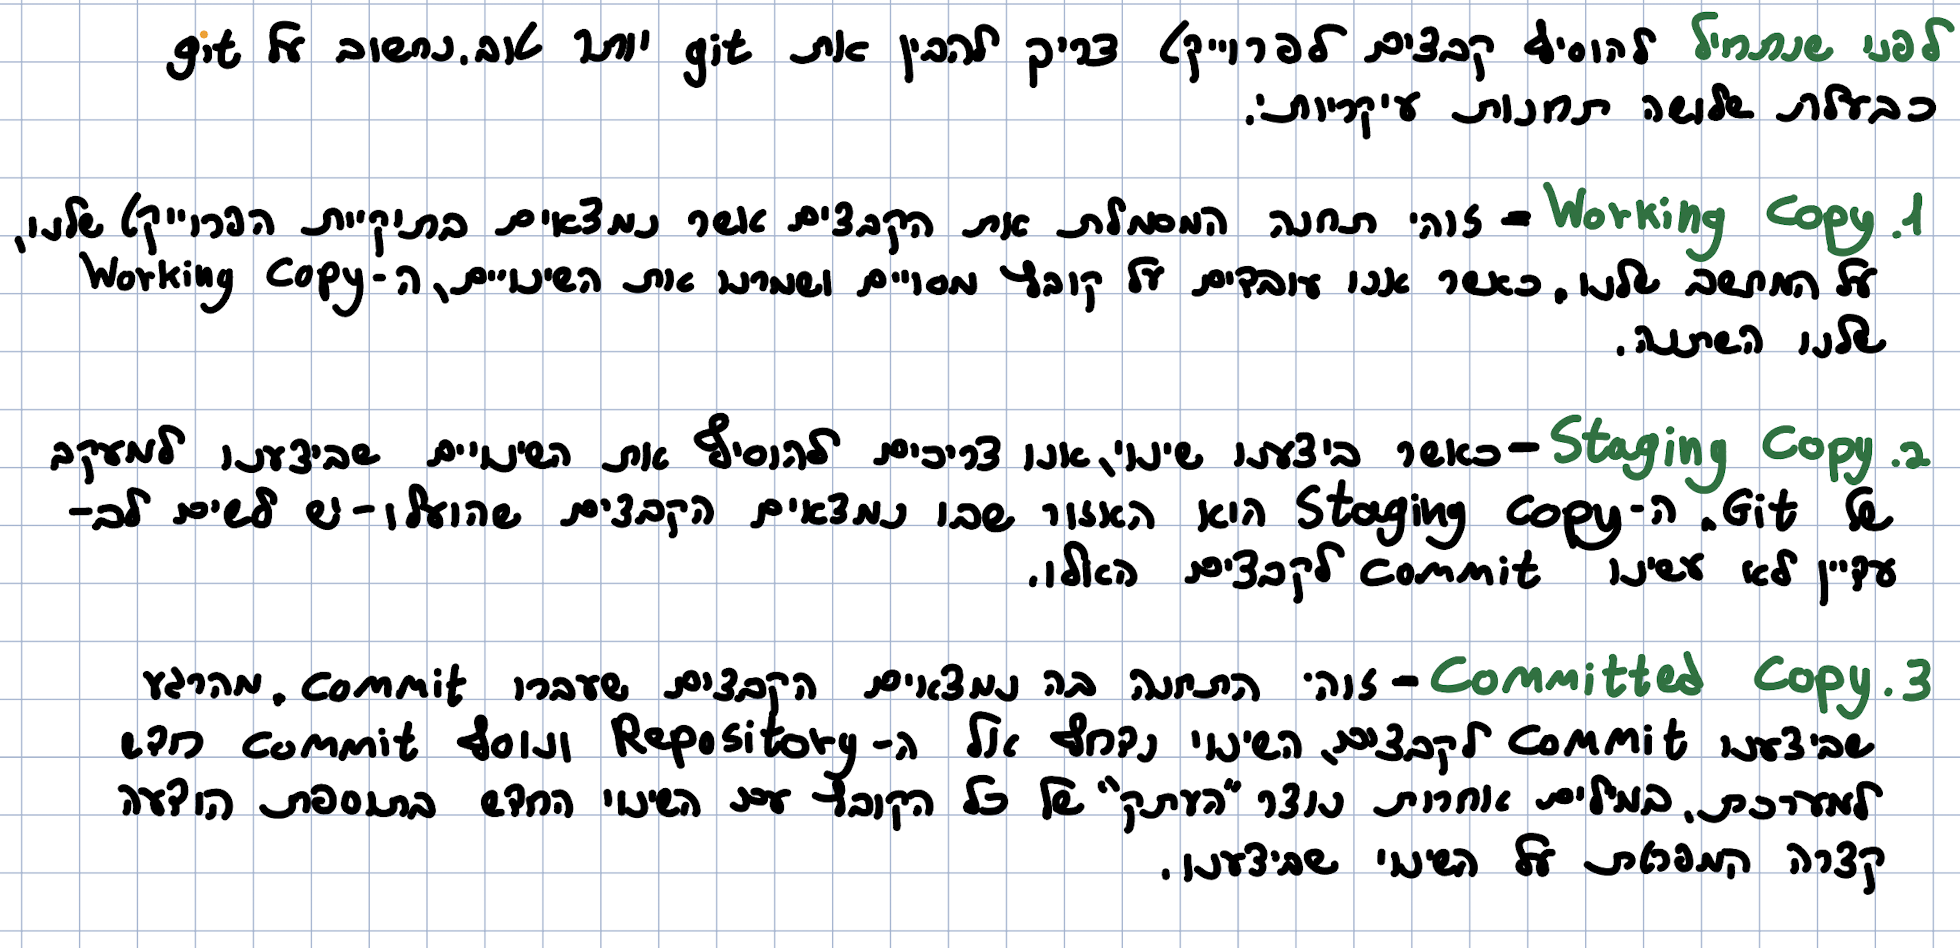 לפני שנתחיל להוסיף קבצים לפרוייקט צריך להבין את git יותר טוב. נחשוב על git
כבעלת שלושה תחנות עיקריות:
1. Working Copy - זוהי תחנה המסמלת את הקבצים אשר נמצאים בתיקיית הפרוייקט שלנו,
על המחשב שלנו. כאשר אנו עובדים על קובץ מסויים ושמרנו את השינויים, ה-Working Copy
שלנו השתנה.
2. Staging Copy - כאשר ביצענו שינוי, אנו צריכים להוסיף את השינויים שביצענו למעקב
של Git. ה-Staging Copy הוא האזור שבו נמצאים הקבצים שהועלו - יש לשים לב -
עדיין לא עשינו commit לקבצים האלו.
3. Committed Copy - זוהי התחנה בה נמצאים הקבצים שעברו commit. מהרגע
שביצענו commit לקבצים, השינוי נדחף אל ה-Repository ונוסף commit חדש
למערכת. במילים אחרות נוצר "העתק" של כל הקובץ עם השינוי החדש בתוספת הודעה
קצרה המפרטת על השינוי שביצענו.